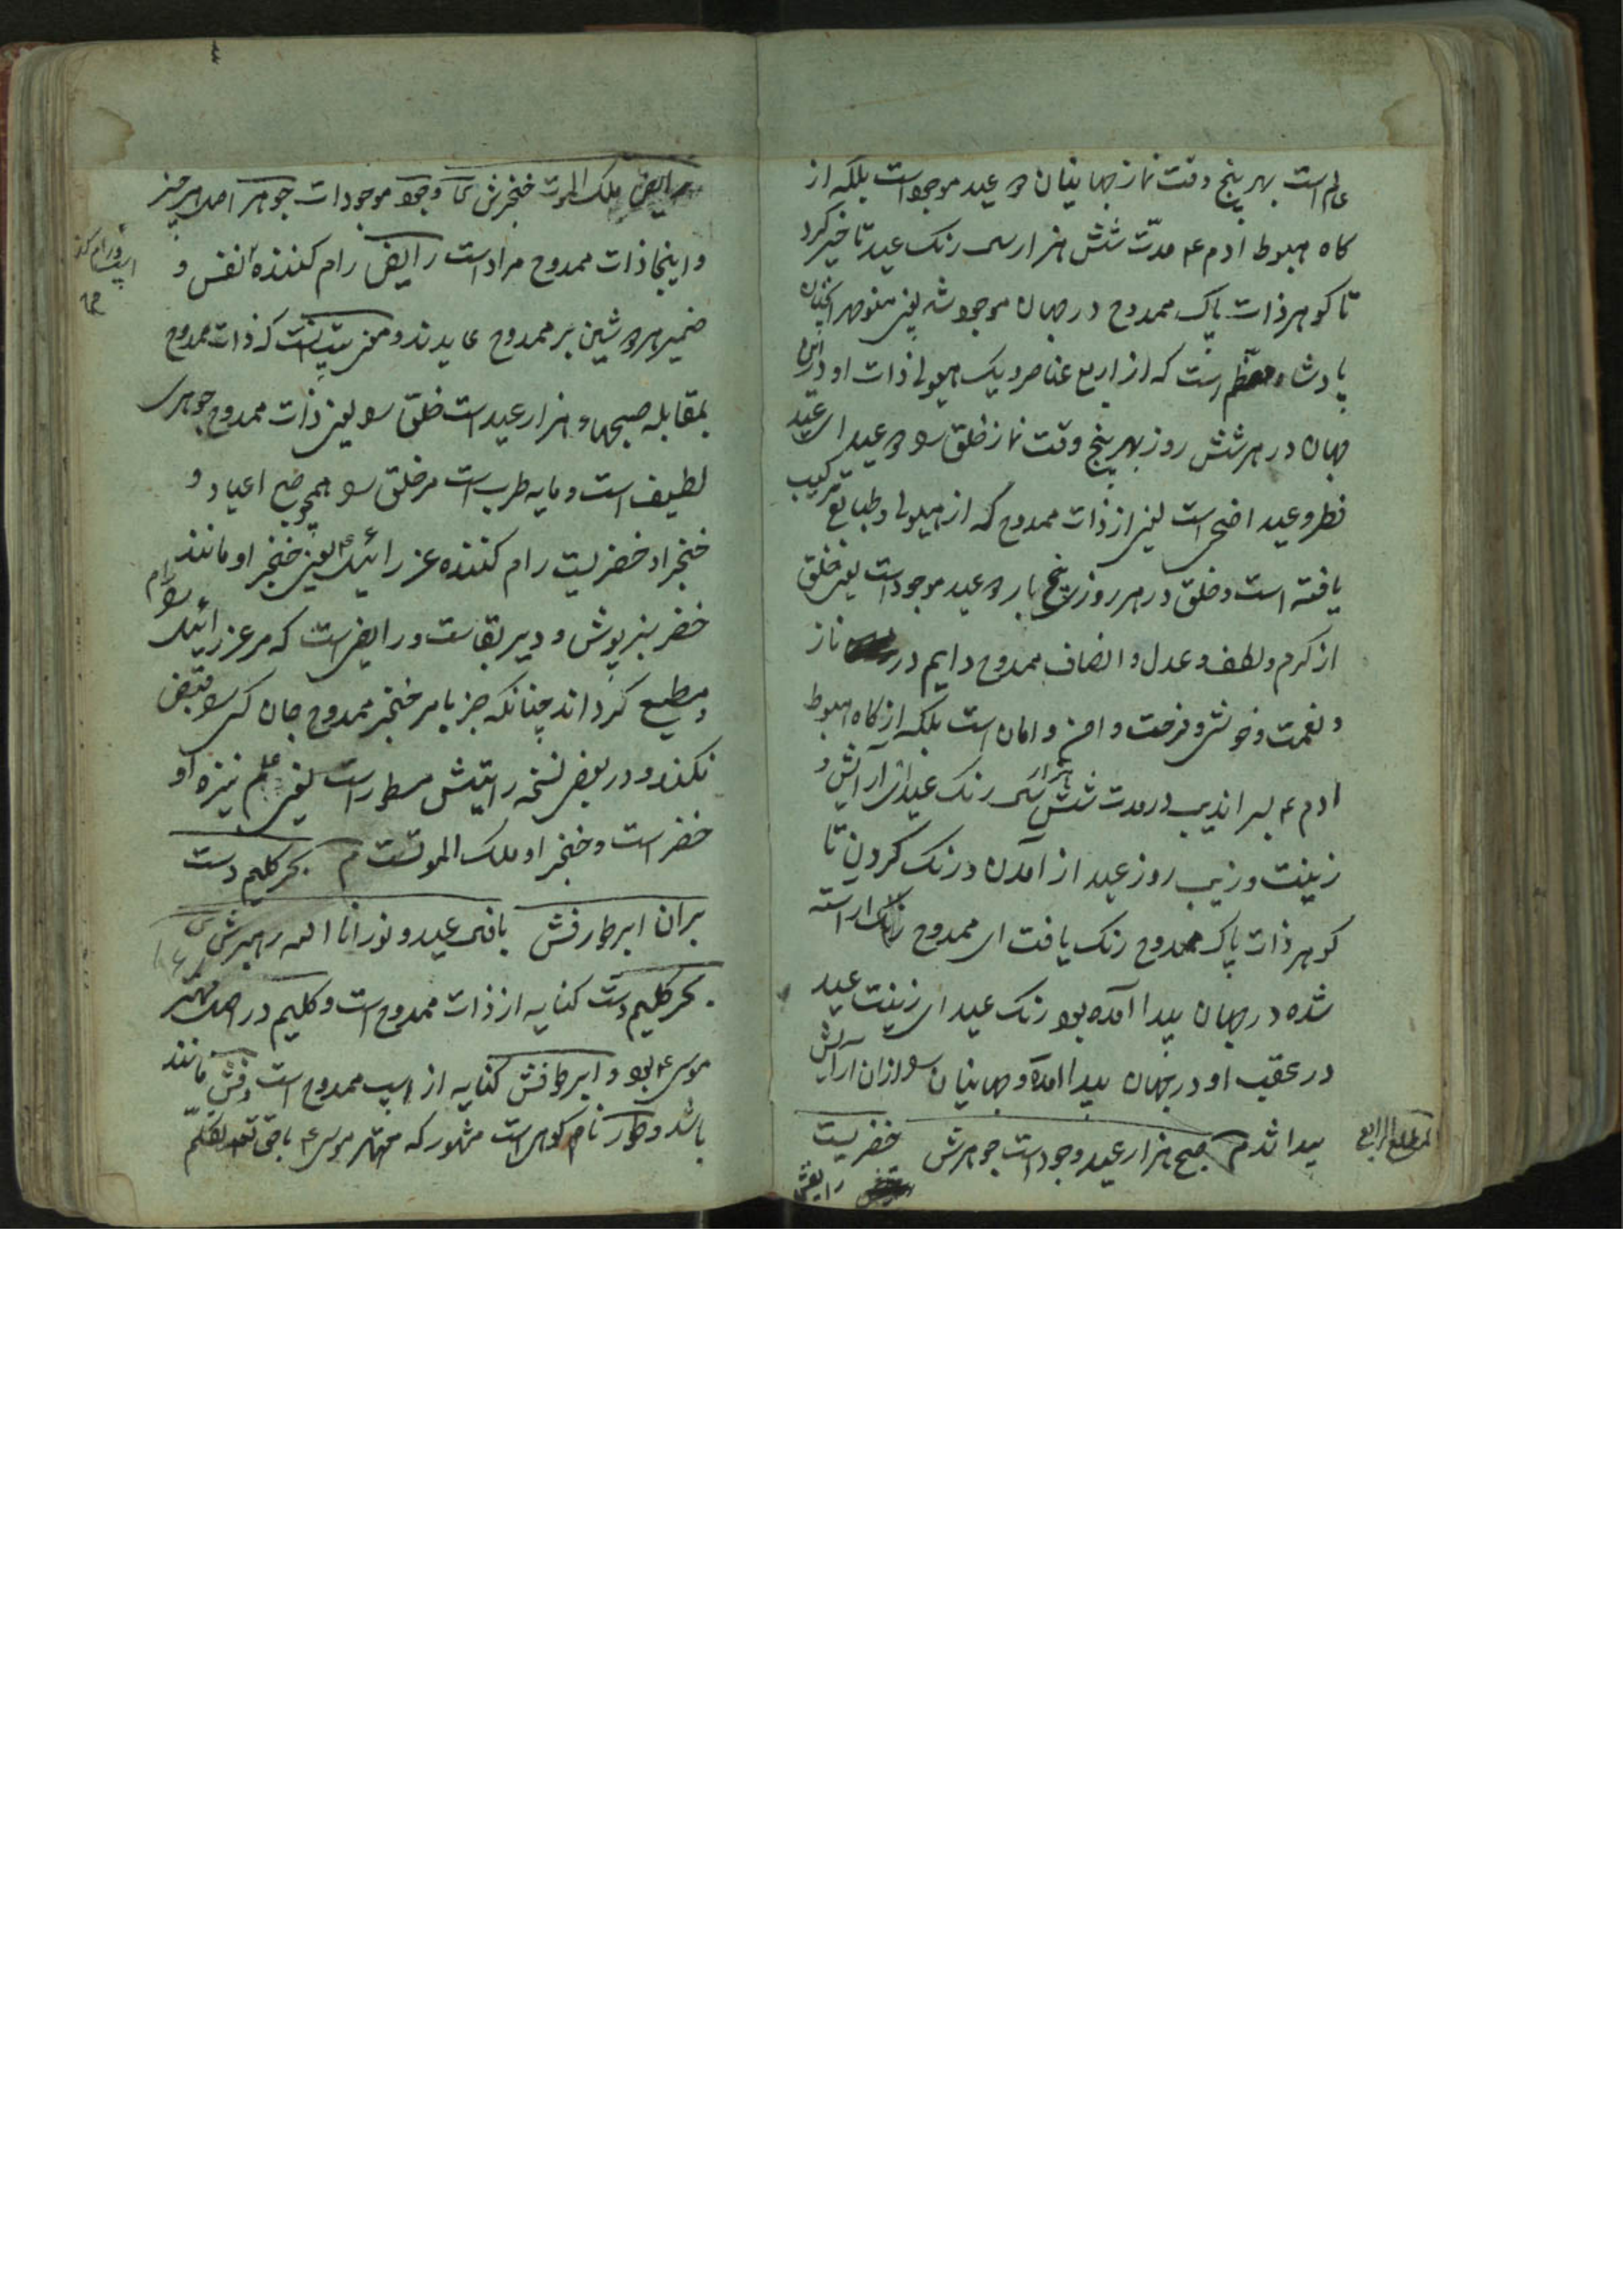 عالم است بهر پنج وقت نماز جهانیان دو عید موجود است بلکه از
کاه هبوط ادم ع مدّت شش هزار سی رنک عید تاخیر کرد
تا کوهر ذات پاک ممدوح در جهان موجود شد یعنی
پادشاه معظم است که از اربع عناصر و یک هیولی ذات او در این
جهان در هر شش روز بهر پنج وقت نماز خلق را دو عید ای عید
فطر و عید اضحی است یعنی از ذات ممدوح که از هیولی و طبایع ترکیب
یافته است و خلق در هر روز پنج بار دو عید موجود است یعنی خلق
از کرم و لطف و عدل و انصاف ممدوح دایم در ناز
و نعمت و خوشی و فرحت و امن و امان است بلکه از کاه هبوط
ادم ع بسراندیب در مدت شش هزار سی رنک عید ای آرایش و
زینت و زیب روز عید از آمدن درنک کردن تا
کوهر ذات پاک ممدوح رنک یافت ای ممدوح اراسته
شده در جهان پیدا آمده بود رنک عید ای زینت عید
در عقب او در جهان پیدا آمد و جهانیان را ازان آرایش
پیدا شد م صبح هزار عید وجود است جوهرش خضریست
رایض
المطلع الرابع
رایض ملک الموت خنجرش ش وجود موجودات جوهر اصل هر چیز
و اینجا ذات ممدوح مراد است رایض رام کننده نفس و
ضمیر هر دو شین بر ممدوح عاید اند و معنی بیت اینست که ذات ممدوح
بمقابله صبحهاء هزار عید است خلق را یعنی ذات ممدوح جوهری
لطیف است و مایه طرب است مر خلق را همچو صبح اعیاد و
خنجر او خضریست رام کننده عزرائیل ع یعنی خنجر او مانند
خضر سبز پوش و دیر بقاست و رایض است که مر عزرائیل را رام
و مطیع کرداند چنانکه جز بامر خنجر ممدوح جان کسی را قبض
نکند و در بعضی نسخه رایتش مسطور است یعنی علم نیزه او
خضر است و خنجر او ملک الموتست م بحر کلیم دست
بران ابر طور فش باقی عید و نور انا الله رهبرش ش
بحر کلیم دست کنایه از ذات ممدوح است و کلیم در اصل مهتر
موسی ع بود و ابر طور فش کنایه از اسپ ممدوح است و فش مانند
باشد و طور نام کوهیست مشهور که مهتر موسی ع با حق تعالی تکلّم